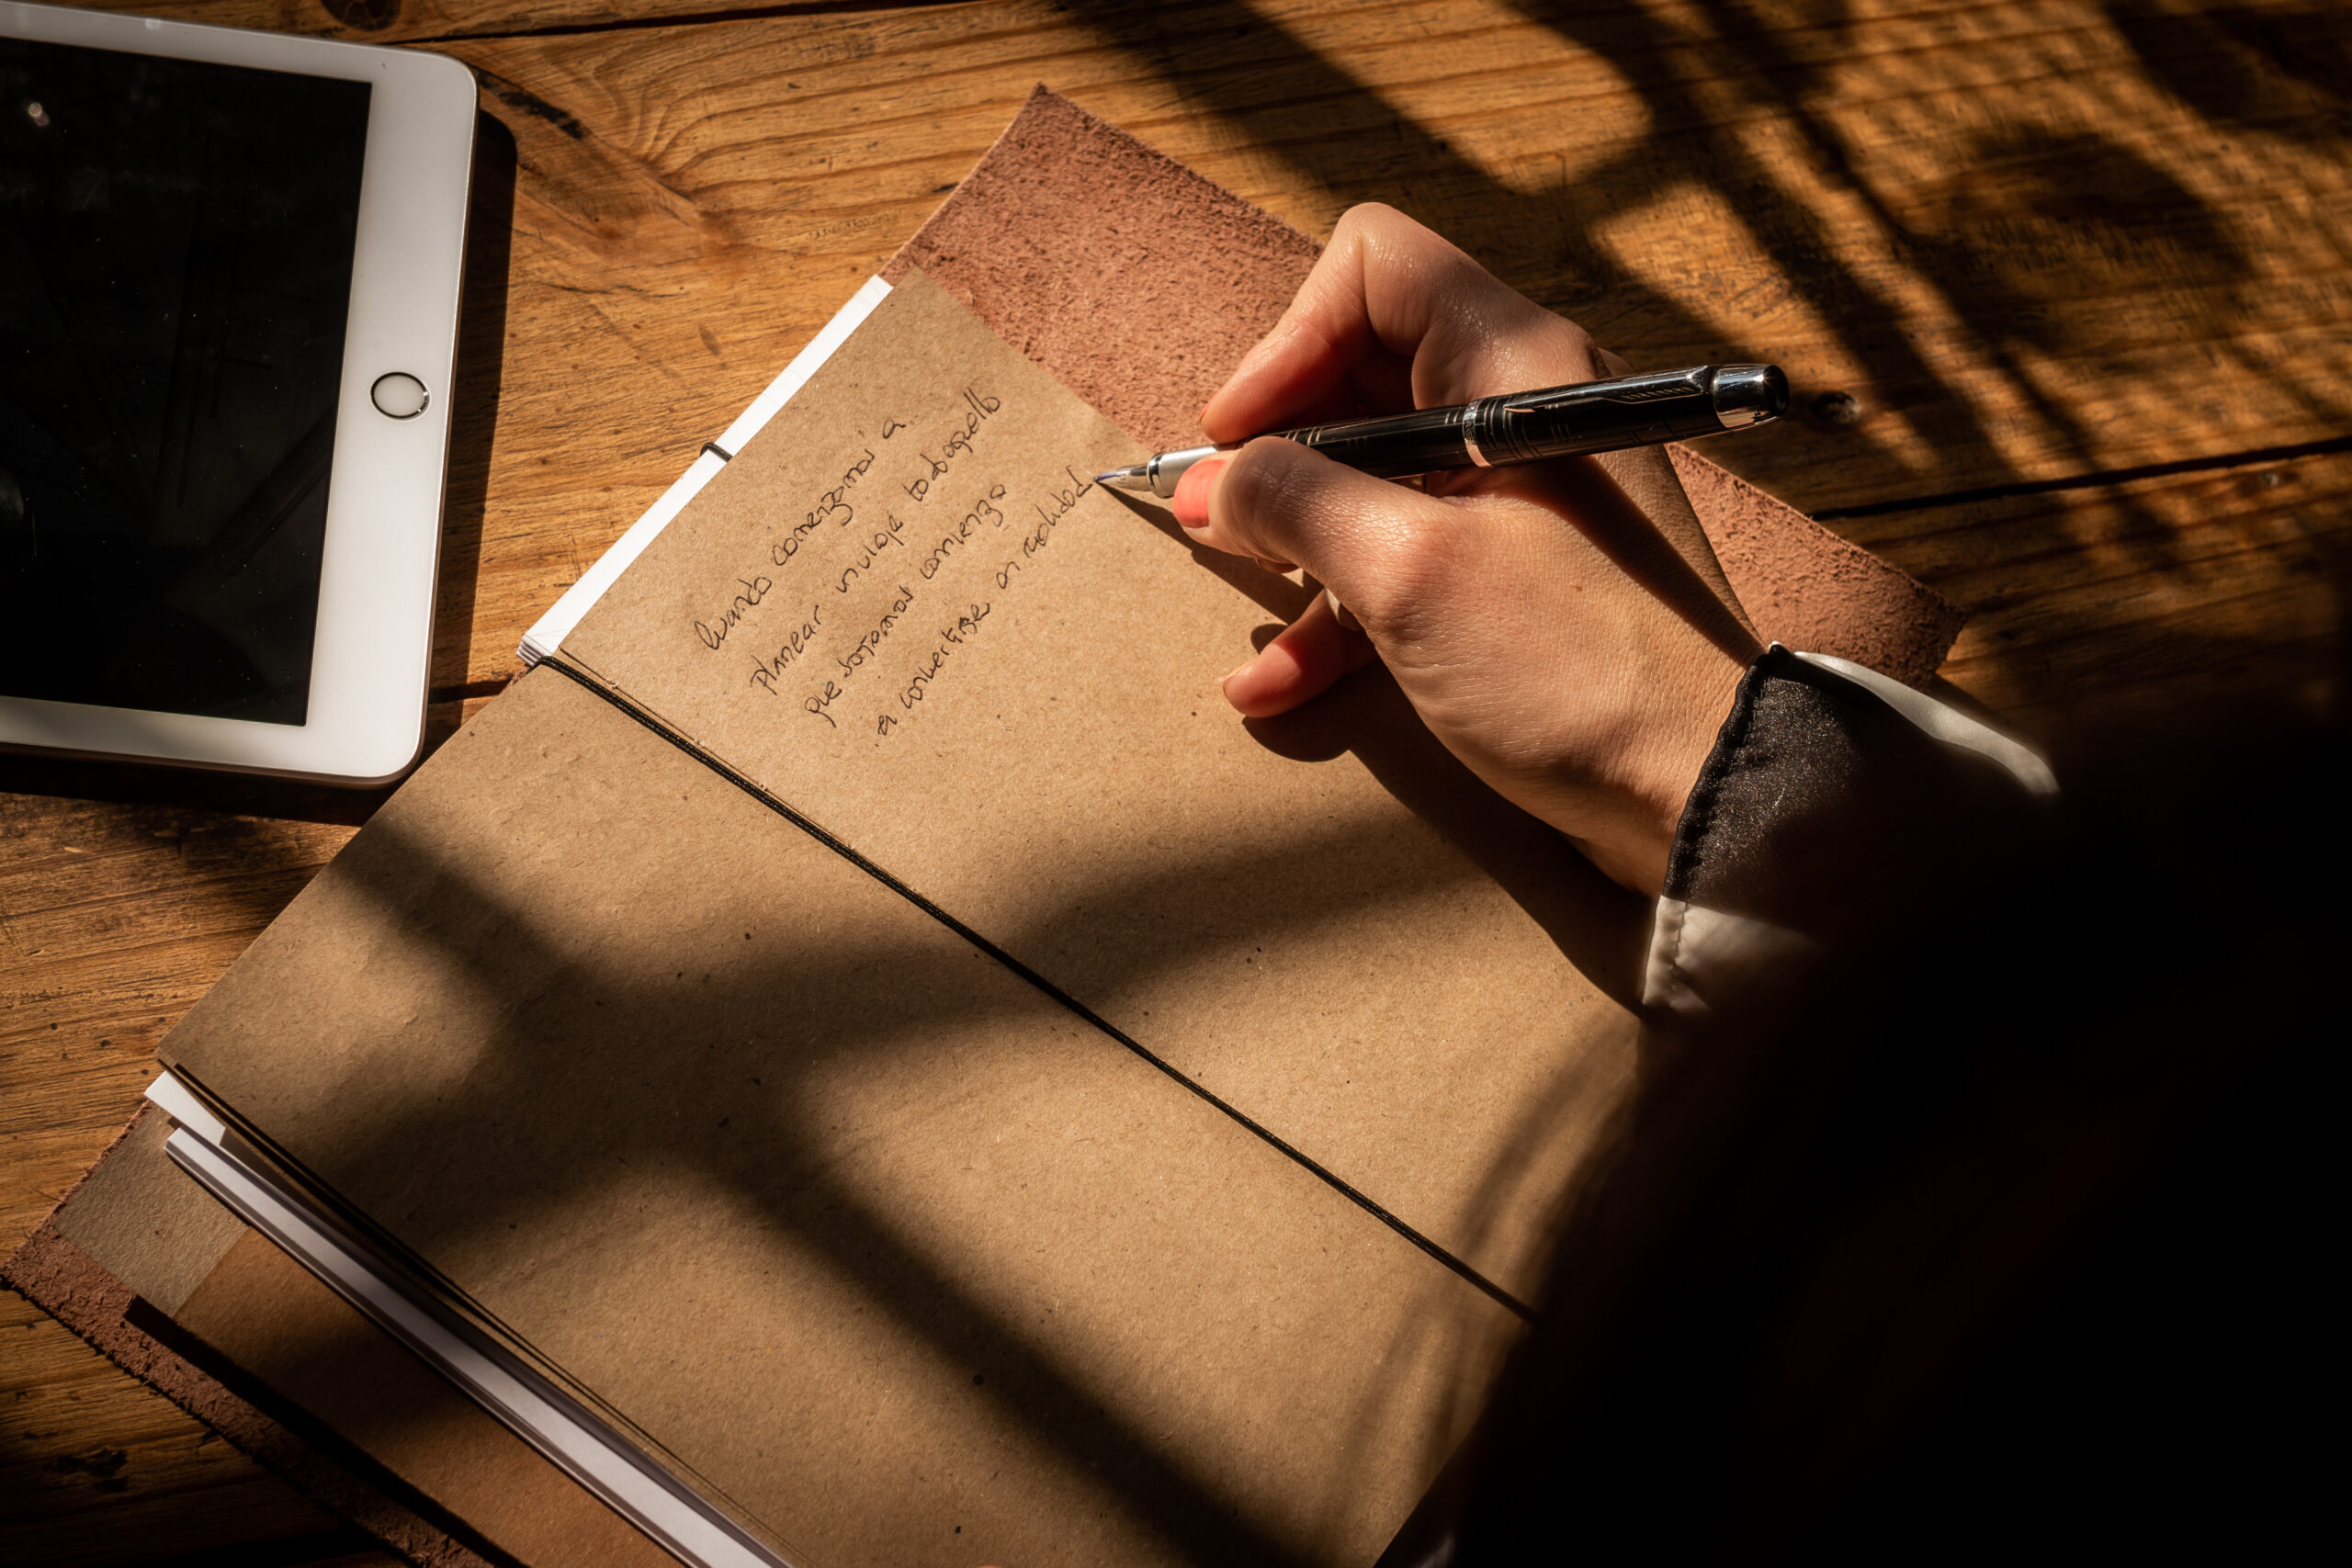 Cuando comenzamos a
planear un viaje todo aquello
que soñamos comienza
a convertirse en realidad